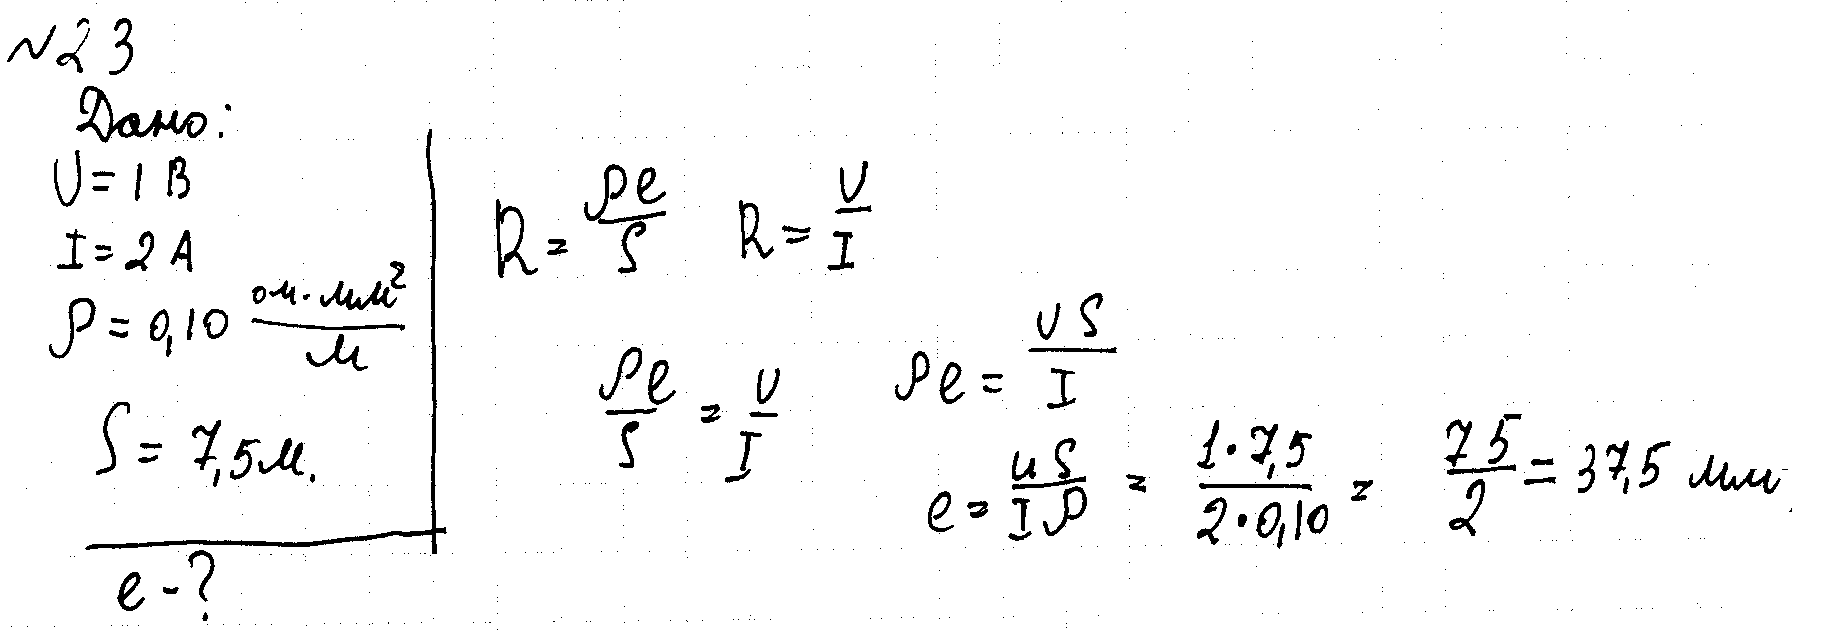 №23
Дано:
U = 1 В
I = 2 А
ρ = 0,10 ом·мм²/м
S = 7,5 м.
l - ?
R = ρl/S   R = U/I
ρl/S = U/I   ρl = US/I
l = uS/Iρ = 1·7,5/2·0,10 = 75/2 = 37,5 мм